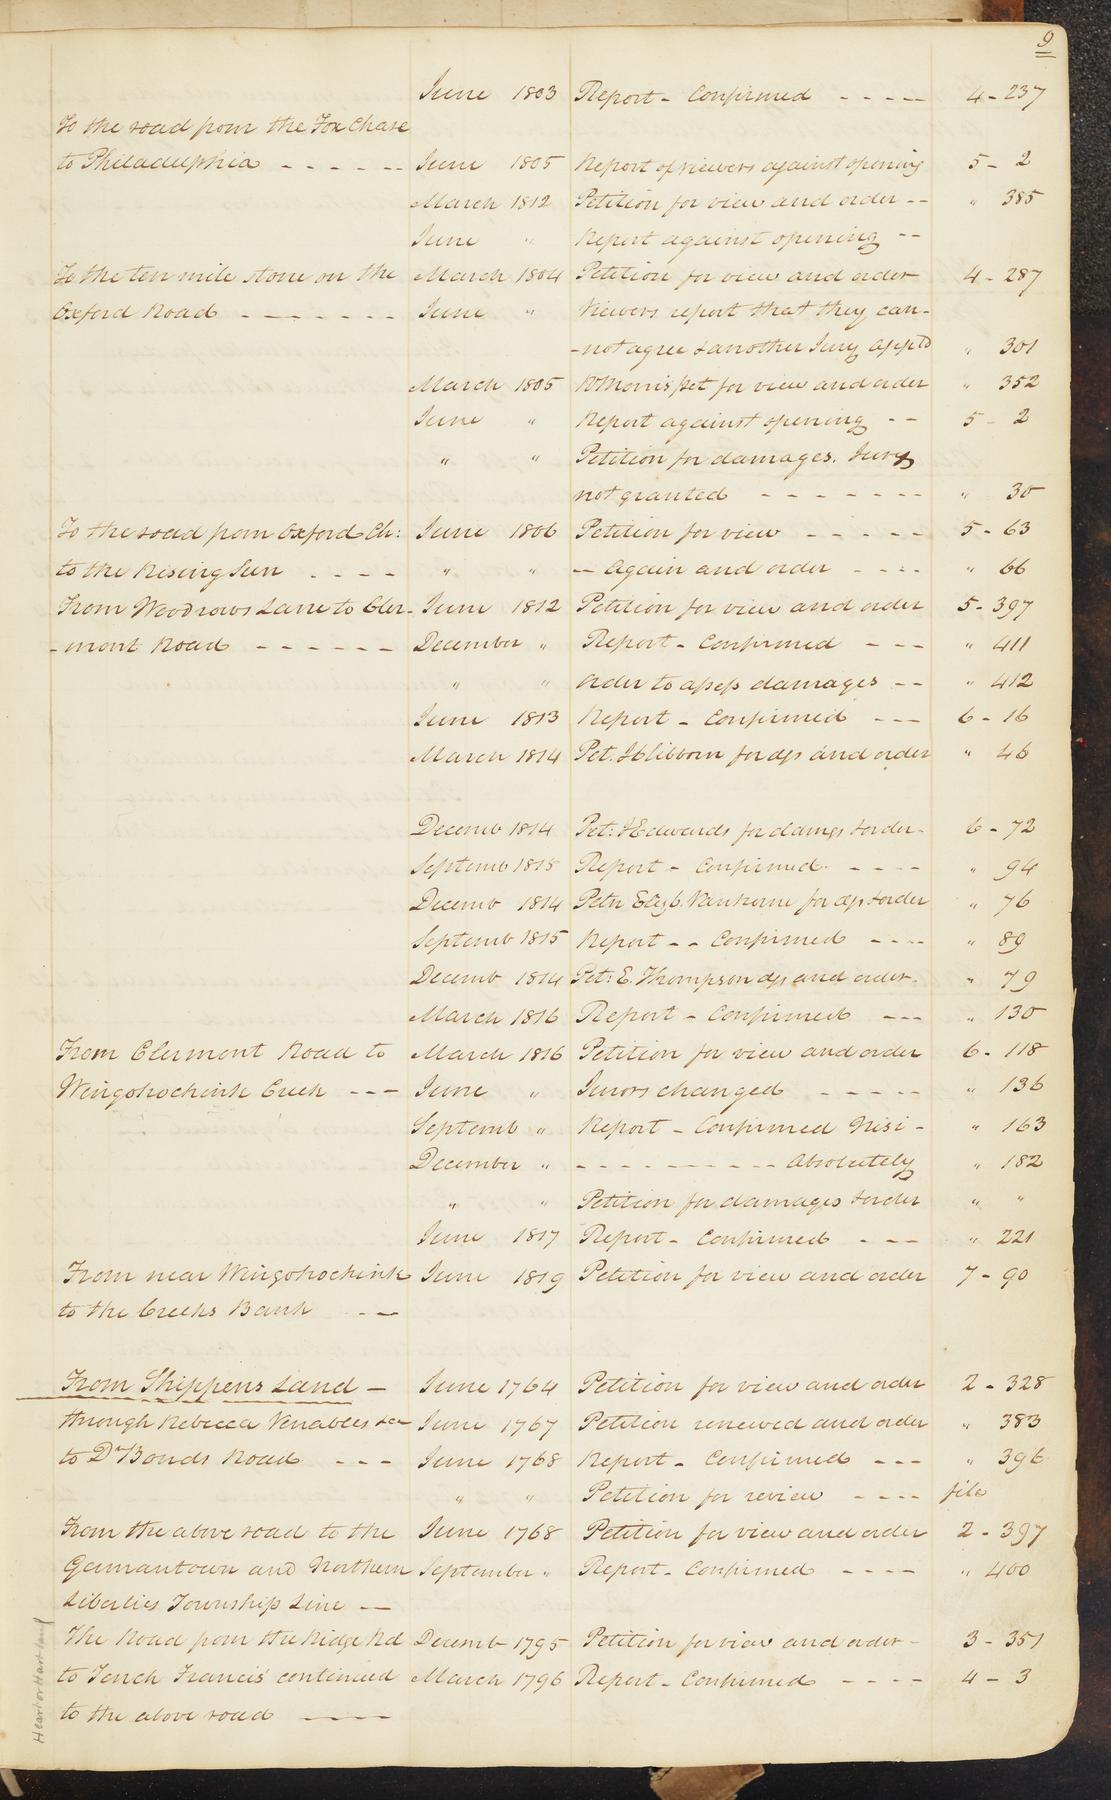 9
June 1803 Report - Confirmed - - - - - 4 - 237
To the road from the Fox Chase
to Philadelphia - - - - - - June 1805 Report of viewers against opening 5 - 2
March 1812 Petition for view and order - - " 385
June " Report against opening - -
To the ten mile stone on the March 1804 Petition for view and order 4 - 287
Oxford Road - - - - - - - June " Viewers report that they can-
-not agree & another Jury app'td " 301
March 1805 Morris pet for view and order " 352
June " Report against opening - - 5 - 2
" " Petition for damages. Jury
not granted - - - - - - - - " 30
To the road from Oxford Ch: June 1806 Petition for view - - - - - 5 - 63
to the Rising Sun - - - - " " -- Again and order - - - - " 66
From Woodrows Lane to Cler- June 1812 Petition for view and order 5 - 397
-mont Road - - - - - - December " Report - Confirmed - - - " 411
" " Order to assess damages - - " 412
June 1813 Report - Confirmed - - - 6 - 16
March 1814 Pet. Hibborn for d^gs and order " 46
Decemb 1814 Pet: J Edwards for damgs & order - 6 - 72
Septemb 1815 Report - Confirmed - - - - " 94
Decemb 1814 Petn Eliz^b. Vanhorne for dgs & order " 76
Septemb 1815 Report - - Confirmed - - - - " 89
Decemb 1814 Pet: E. Thompson dgs and order - " 79
March 1816 Report - Confirmed - - - " 130
From Clermont Road to March 1816 Petition for view and order 6 - 118
Wingohochink Creek - - - June " Jurors changed - - - - - " 136
Septemb " Report - Confirmed Nisi - " 163
December " - - - - - - - - - - Absolutely " 182
" " Petition for damages & order " "
June 1817 Report - Confirmed - - - " 221
From near Wingohochink June 1819 Petition for view and order 7 - 90
to the Creeks Bank - -
From Shippens Land - June 1764 Petition for view and order 2 - 328
through Rebecca Venables &c June 1767 Petition renewed and order " 383
to Dr Bonds Road - - - June 1768 Report - Confirmed - - - " 396
" " Petition for review - - - - file
From the above road to the June 1768 Petition for view and order 2 - 397
Germantown and Northern September " Report - Confirmed - - - - " 400
Liberties Township Line -
The Road from the Ridge Rd Decemb 1795 Petition for view and order - 3 - 351
to Tench Francis' continued March 1796 Report - Confirmed - - - - 4 - 3
to the above road - - - -
Heart or Hart land